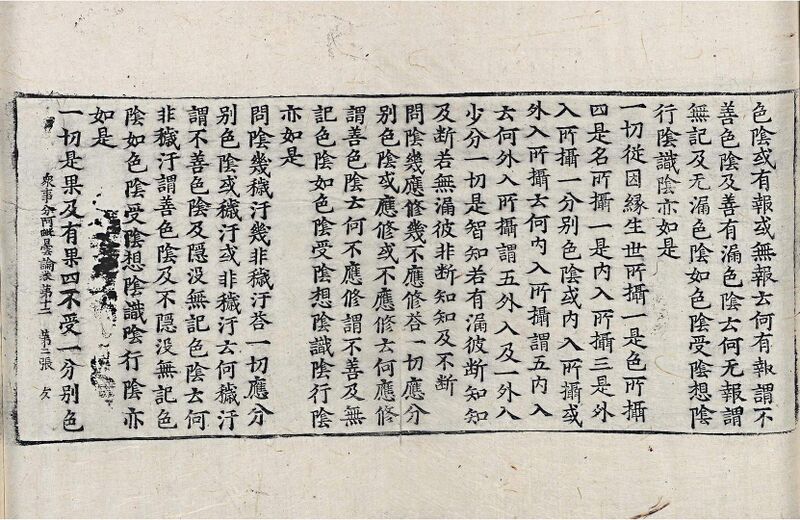 色陰或有報或無報去何有報謂不
善色陰及善有漏色陰去何无報謂
無記及无漏色陰如色陰受陰想陰
行陰識陰亦如是
一切從因緣生世所攝一是色所攝
四是名所攝一是內入所攝三是外
入所攝一分別色陰或內入所攝或
外入所攝去何內入所攝謂五內入
去何外入所攝謂五外入及一外入
少分一切是智知若有漏彼断知知
及断若無漏彼非断知知及不断
問陰幾應修幾不應修荅一切應分
別色陰或應修或不應修去何應修
謂善色陰去何不應修謂不善及無
記色陰如色陰受陰想陰識陰行陰
亦如是
問陰幾穢汙幾非穢汙荅一切應分
別色陰或穢汙或非穢汙去何穢汙
謂不善色陰及隱没無記色陰去何
非穢汙謂善色陰及不隱没無記色
陰如色陰受陰想陰識陰行陰亦
如是
一切是果及有果四不受一分別色
衆事分阿毗曇論 第十二 第二張 友